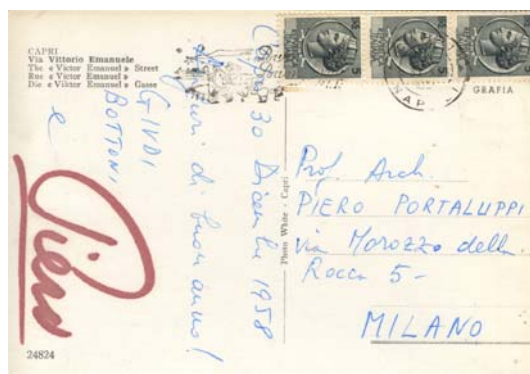 CAPRI
Via Vittorio Emanuele
The « Victor Emanuel » Street
Rue « Victor Emanuel »
Die « Viktor Emanuel » Gasse
Capri 30 Dicembre 1958
Auguri di buon anno!
GIUDI
BOTTONI
e
Piero
24824
Photo White - Capri
GRAFIA
Prof. Arch.
PIERO PORTALUPPI
via Morozzo della
Rocca 5-
MILANO